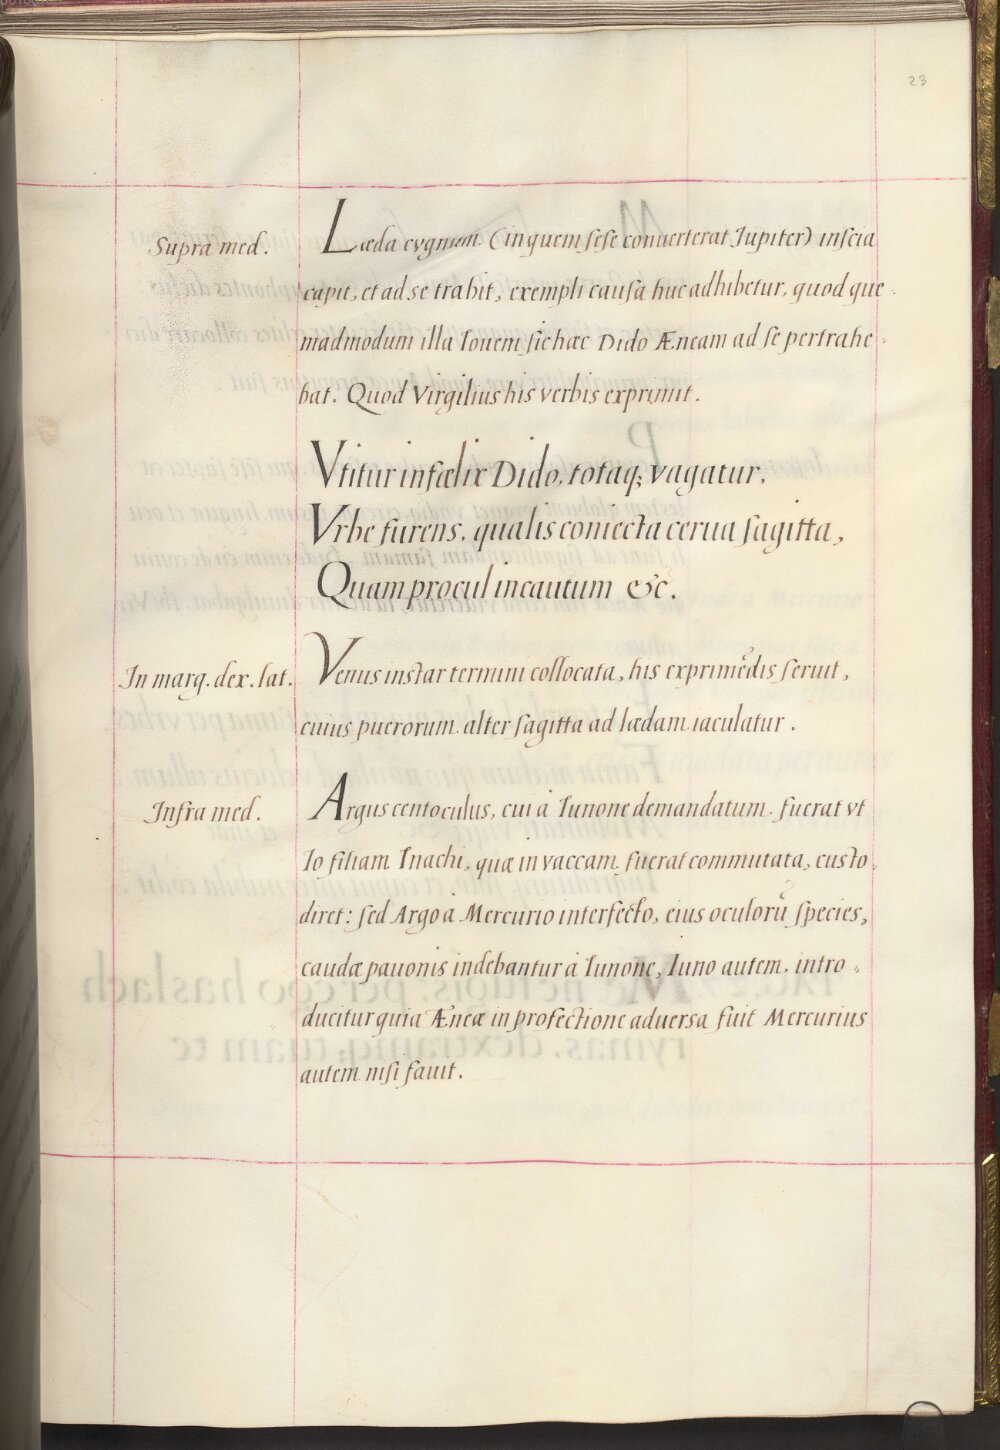 23
Supra med.
Læda cygnum (in quem sese conuerterat Jupiter) inscia
capit, et ad se trahit, exempli causa huc adhibetur, quod que
madmodum illa Iouem sic hæc Dido Æneam ad se pertrahe
bat. Quod Virgilius his verbis exprimit.
Vtitur infœlix Dido, totaq; vagatur,
Vrbe furens, qualis coniecta cerua sagitta,
Quam procul incautum &c.
In marg. dex. lat.
Venus instar termini collocata, his exprimēdis seruit,
cuius puerorum alter sagitta ad lædam iaculatur.
Infra med.
Argus centoculus, cui à Iunone demandatum fuerat vt
Io filiam Inachi, quæ in vaccam fuerat commutata, custo
diret: sed Argo à Mercurio interfecto, eius oculorū species,
caudæ pauonis indebantur à Iunone, Iuno autem intro
ducitur quia Æneæ in profectione aduersa fuit Mercurius
autem nisi fauit.